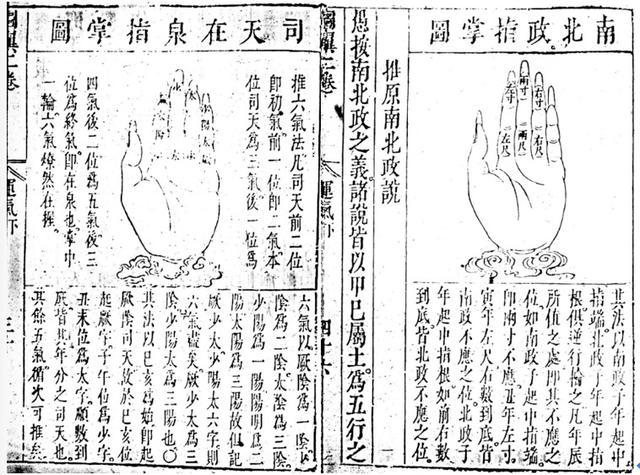 南北政指掌圖
左寸 兩寸 右寸
左尺 兩尺 右尺
南政子年起中
指端北政子年起中指
根俱逆行輪之凡年辰
所值之處卽其不應之
位如南政子起中指端
卽兩寸不應丑年左寸
寅年左尺右數到底皆
南政不應之位北政子
年起中指根如前右數
到底皆北政不應之位
推原南北政說
愚按南北政之義諸說皆以甲巳屬土爲五行之
圖翼二卷
運氣下
四十六
司天在泉指掌圖
推六氣法凡司天前二位
卽初氣前一位卽二氣本
位司天爲三氣後一位爲
四氣後二位爲五氣後三
位爲終氣卽在泉也掌中
一輪六氣燎然在握
六氣以厥陰爲一陰少
陰爲二陰太陰爲三陰
少陽爲一陽陽明爲二
陽太陽爲三陽故但記
厥少太少陽太六字則
六氣盡矣厥少太爲三
陰少陽太爲三陽也○
其法以巳亥爲始卽起
厥陰司天故於巳亥位
起厥字子午位爲少字
丑未位爲太字順數到
底皆其年分之司天也
其餘五氣循次可推矣
圖翼二卷
運氣下